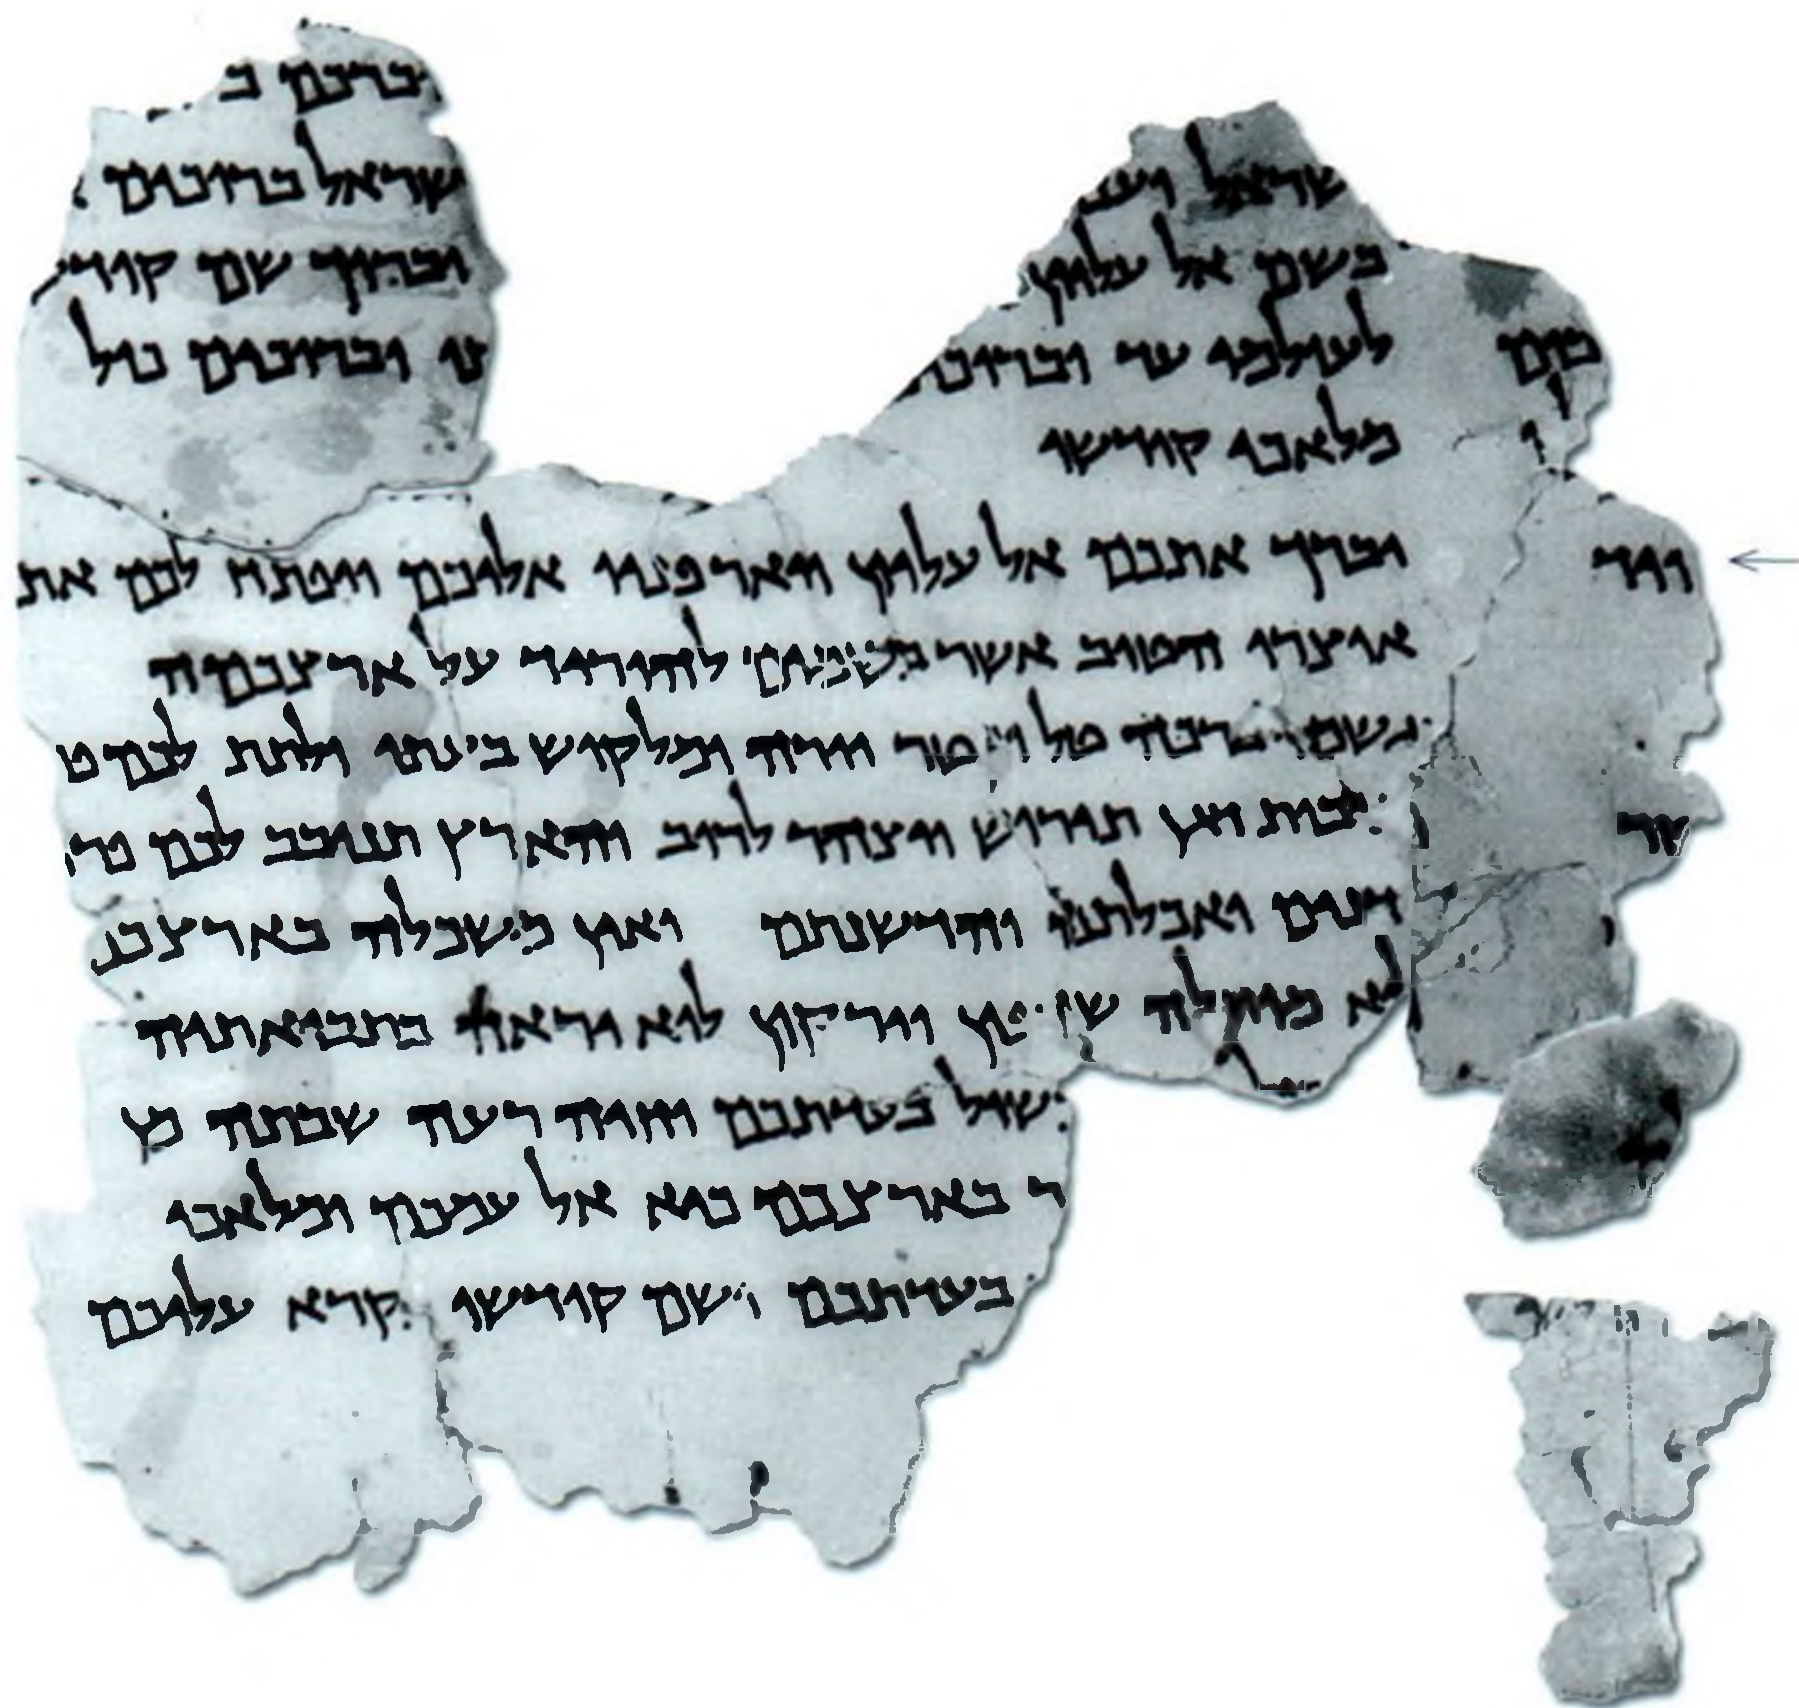 ברכם ב
שראל וענ שראל ברוכים
בשם אל עליון וברוך שם קוד
לעולמי עד וברוכי תו וברוכים כול
מלאכי קודשו
יברך אתכם אל עליון ויאר פניו אליכם ויפתח לכם את
אוצרו הטוב אשר בשמים להוריד על ארצכמה
גשמי ברכה טל ומטר יורה ומלקוש בעתו ולתת לכם פ
בות דגן תירוש ויצהר לרוב והארץ תנובב לכם פרי
דנים ואכלתם והדשנתם ואין משכלה בארצכ
לא מוחלה שדפון וירקון לוא יראה בתבואתיה
שול בעדתכם וחיה רעה שבתה מן
ר בארצכם כיא אל עמכם ומלאכי
בעדתכם ושם קודשו נקרא עליכם